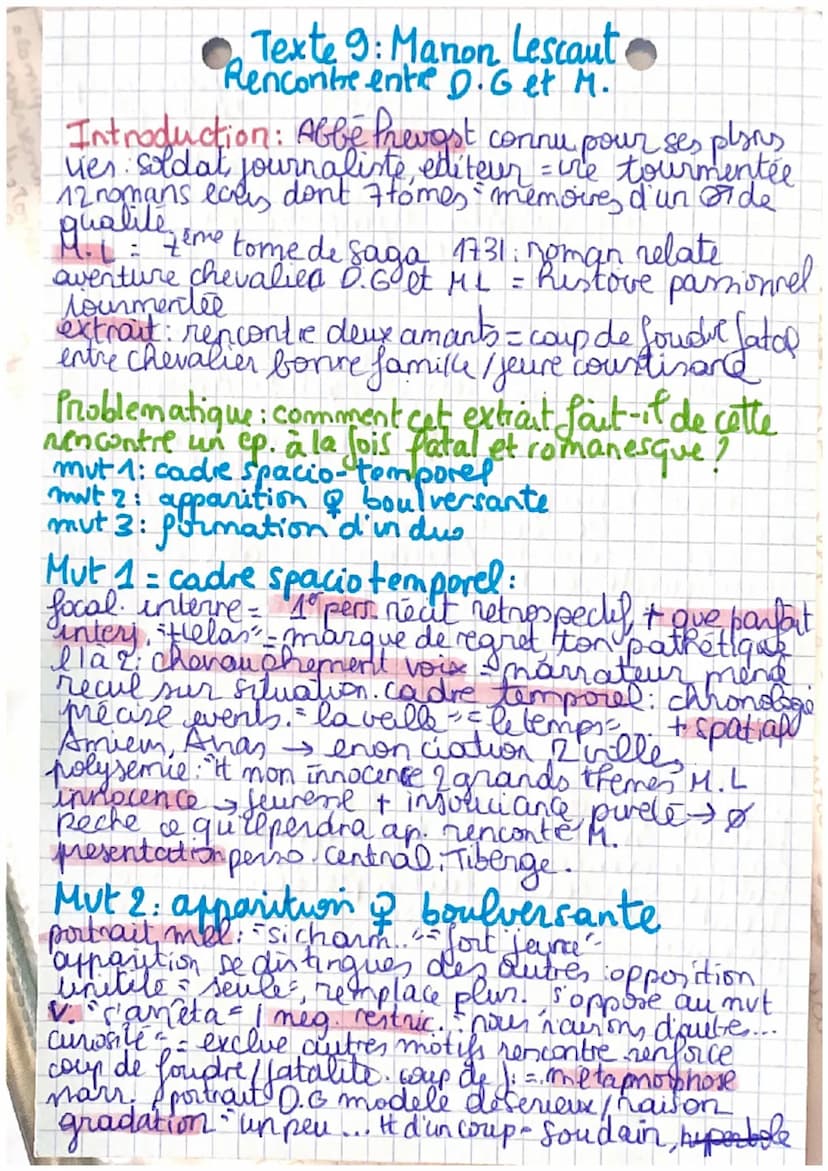 Texte 9: Manon Lescaut
Rencontre entre D.G et M.
Introduction: Abbé Prevost connu pour ses plsrs
vies: soldat, journaliste, editeur = vie tourmentée
12 romans ecrits dont 7 tomes "memoires d'un de
qualité.
M.L = 7ème tome de saga 1731: roman relate
aventure chevalier D.G et ML = histoire passionnel
tourmentée
extrait: rencontre deux amants = coup de foudre fatal
entre chevalier bonne famille / jeune courtisane
Problematique: comment cet extrait fait-il de cette
rencontre un ep. à la fois fatal et romanesque?
mvt 1: cadre spacio-temporel
mvt 2: apparition ♀ boulversante
mvt 3: formation d'un duo
Mvt 1 = cadre spacio temporel:
focal. interne = 1e pers. récit retrospectif, + que parfait
interj. "Helas" = marque de regret, ton pathétique
l1 à 2: chevauchement voix = narrateur prend
recul sur situation. cadre temporel: chronologie
précise events. "la veille" "le temps" + spatial
Amiens, Arras → enonciation 2 villes
polysemie: "tt mon innocence 2 grands themes M.L
innocence → jeunesse + insouciance, pureté → ∅
peche ce qu'il perdra ap. rencontre M.
presentation perso. central: Tiberge.
Mvt 2: apparition ♀ boulversante
portrait mel: "si charm.." "fort jeune"
apparition se distingues des autres: opposition
"seule", remplace plur. s'oppose au mvt
v. "s'arrêta" / neg. restric. "nous n'avions d'autre...
curosité" = exclue autres motifs rencontre renforce
coup de foudre / fatalité. coup de f: = métamorphose
narr. portrait D.G modele de serieux / raison
gradation "un peu ... tt d'un coup" soudain, hyperbole